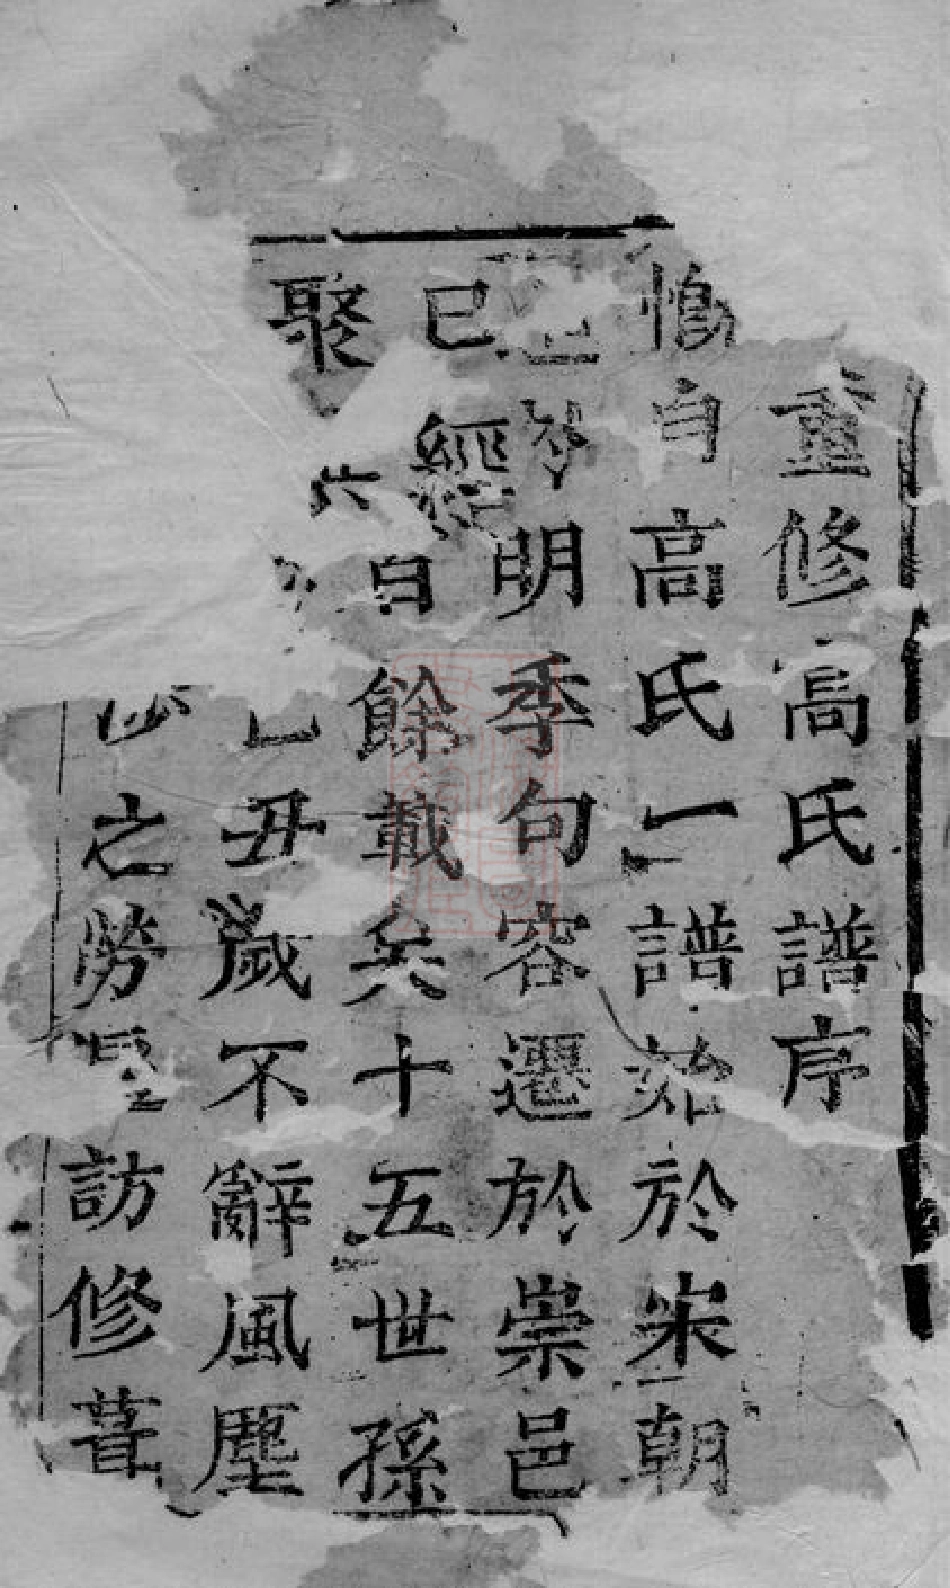 重修高氏譜序
惟自高氏一譜始於宋朝
明季句容遷於崇邑
已經百餘載矣十五世孫
聚 丑歲不辭風塵
之勞 訪修葺